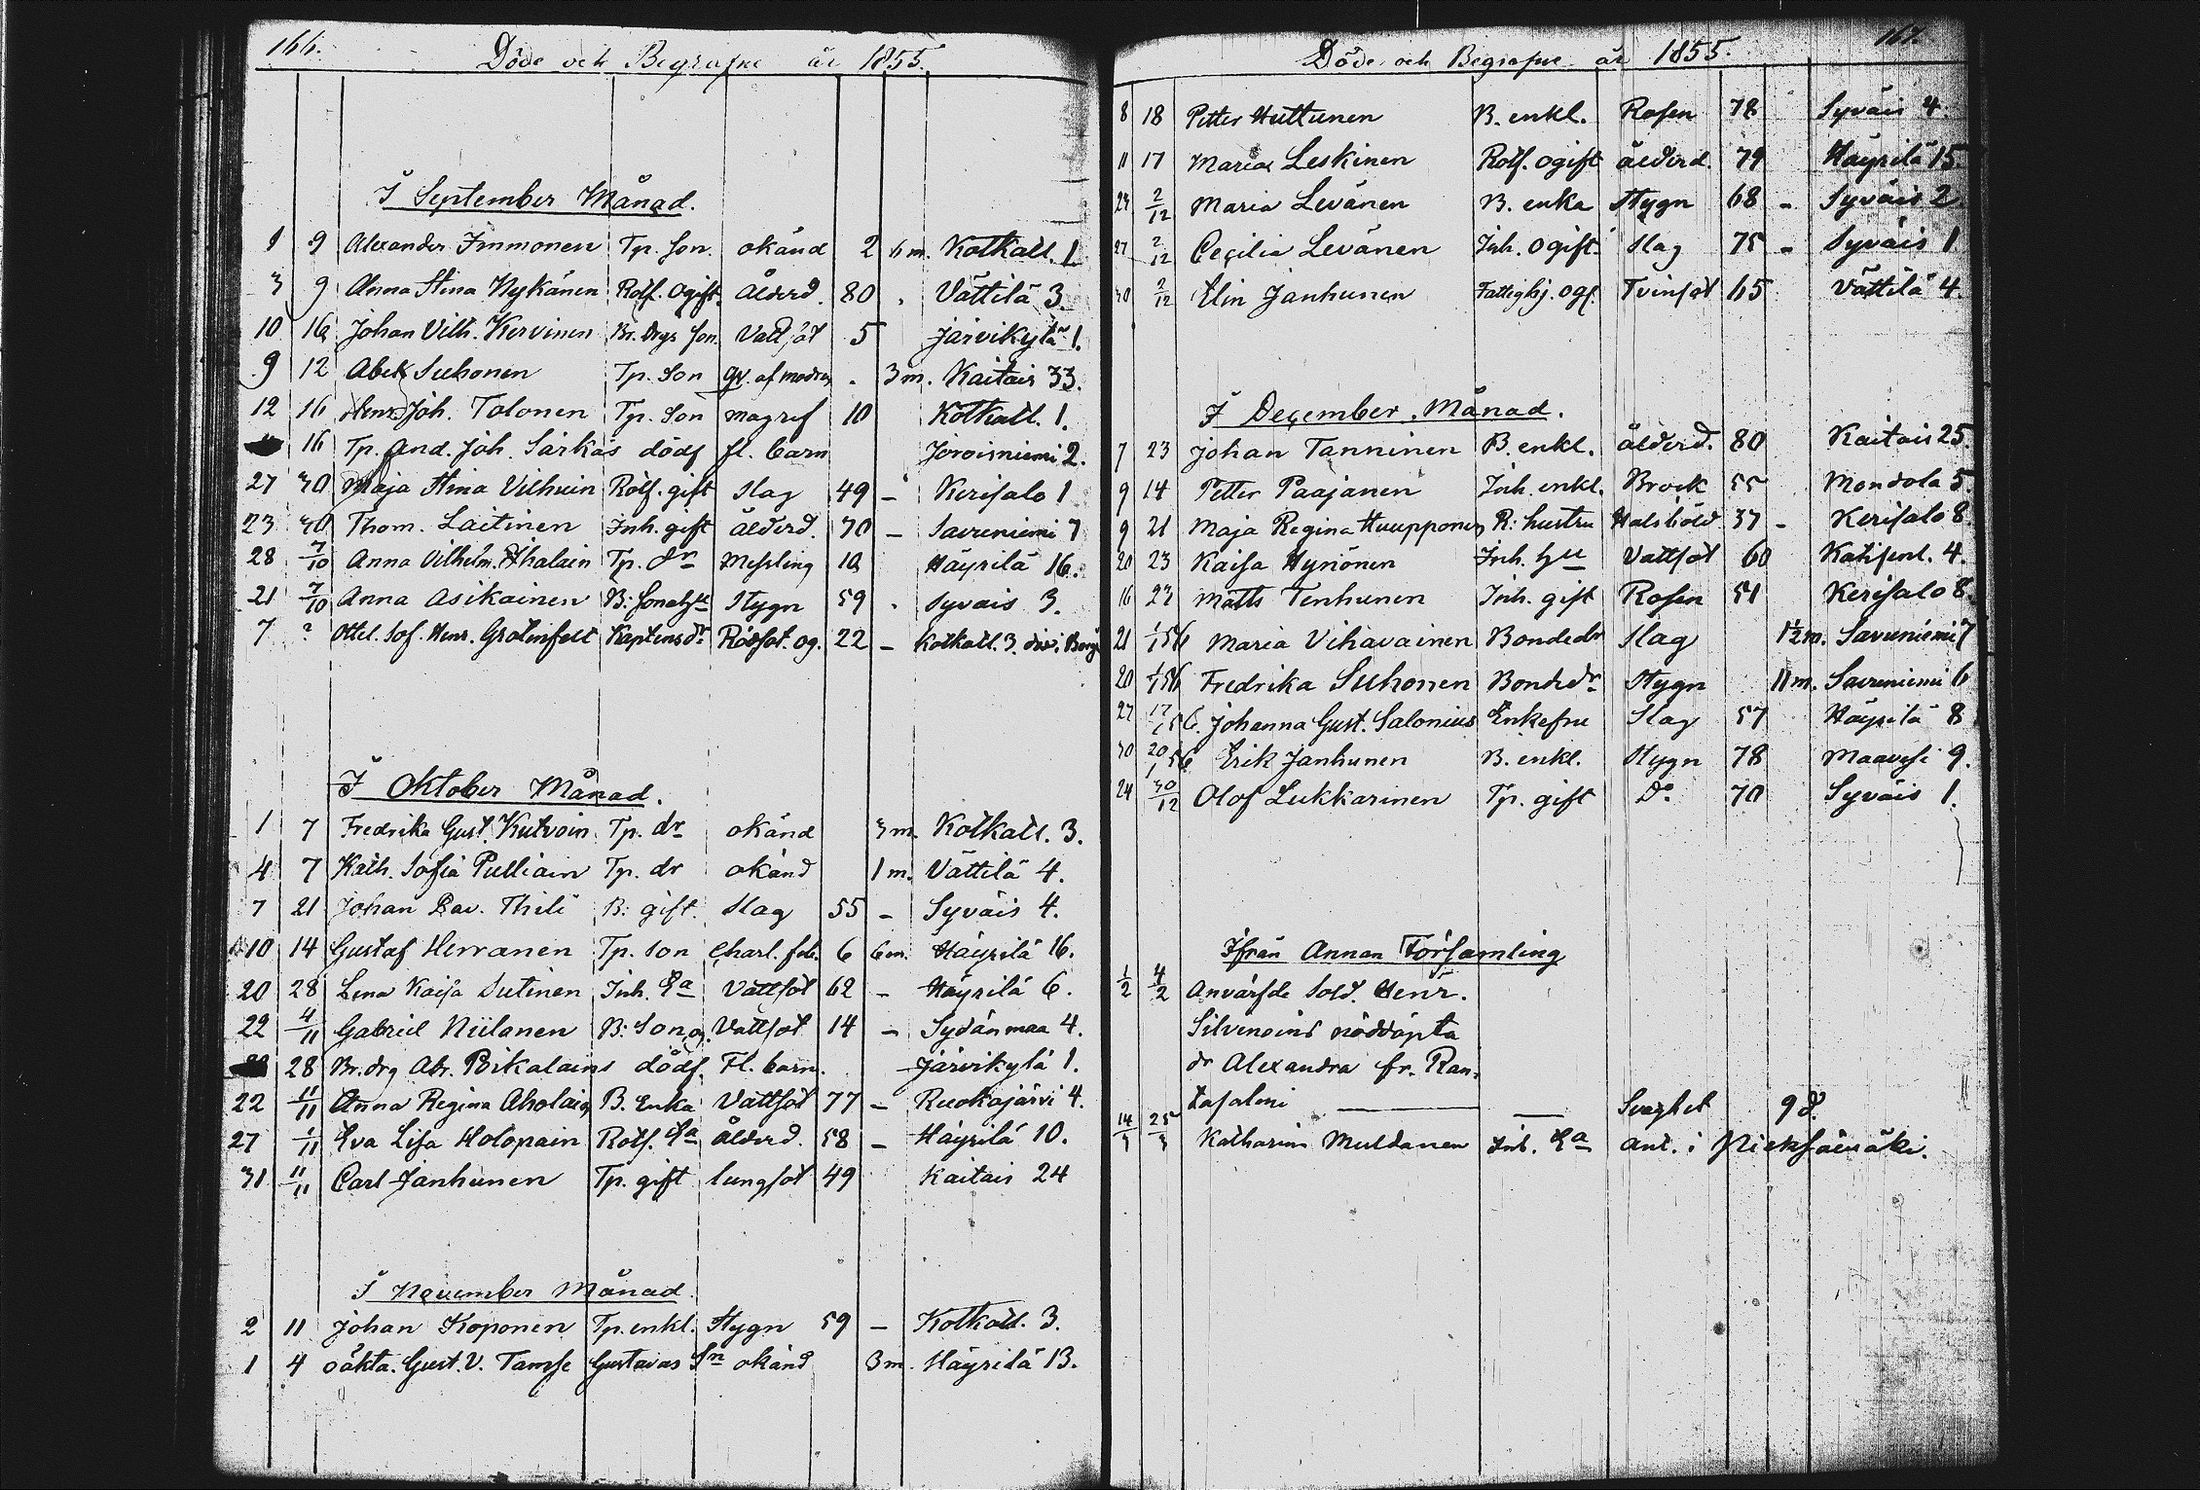 166.
Döde och Begrafne år 1855.
I September Månad.
1 9 Alexander Immonen Tp. son. okänd 2 6 m. Kotkatl. 1
3 9 Anna Stina Nykänen Rotf. ogift. Ålderd. 80 Vättilä 3
10 16 Johan Vilh. Kervinen Br. drgs son. Vattsot 5 Järvikylä 1.
9 12 Abel Suhonen Tp. son qv. af modren 3 m. Kaitais 33.
12 16 Henr. Joh. Tolonen Tp. son magref 10 Kotkatl. 1.
16 Tp. And. Joh. Särkäs dödf fl. barn Joroisniemi 2.
27 30 Maja Stina Vilhuin Rotf. gift slag 49 – Kerisalo 1
23 30 Thom. Laitinen Inh. gift ålderd. 70 – Savuniemi 7
28 7/10 Anna Vilhelm. Ahalain Tp. dr Messling 10 Häyrilä 16.
21 7/10 Anna Asikainen B: sonahu Stygn 59 Syväis 3.
7 ? Ottil. Sof. Henr. Grotenfelt Kaptensdr Rödsot. og. 22 – Kotkatl. 3.
I Oktober Månad.
1 7 Fredrika Gust. Kutvoin Tp. dr okänd 3 m. Kotkatl. 3.
4 7 Kath. Sofia Pulliain Tp. dr okänd 1 m. Vättilä 4.
7 21 Johan Dav. Thilé B: gift. slag 55 – Syväis 4.
10 14 Gustaf Herranen Tp. son Charl. feb. 6 6 m. Häyrilä 16.
20 28 Lena Kaisa Sutinen Inh. Ea Vattsot 62 – Häyrilä 6.
22 4/11 Gabriel Niilanen B: Son, og. Vattsot 14 – Sydänmaa 4.
28 Br. drg Abr. Pirkalains dödf. Fl. barn. Järvikylä 1.
22 11/11 Anna Regina Aholain B. Enka Vattsot 77 – Ruokojärvi 4.
27 1/11 Eva Lisa Holopain Rotf. Ea Ålderd. 58 – Häyrilä 10.
31 11/11 Carl Janhunen Tp. gift lungsot 49 Kaitais 24
I November Månad.
2 11 Johan Koponen Tp. enkl. Stygn 59 – Kotkatl. 3.
1 4 oäkta. Gust. V. Tamse Gustavas Sn okänd 3 m. Häyrilä 13.
167.
Döde och Begrafne år 1855.
8 18 Petter Huttunen B. enkl. Rosen 78 Syväis 4.
11 17 Maria Leskinen Rotf. ogift ålderd. 79 Häyrilä 15.
24 2/12 Maria Levänen B. enka Stygn 68 – Syväis 2.
27 2/12 Cecilia Levänen Inh. ogift. Slag 75 – Syväis 1
30 2/12 Elin Janhunen Fattighj. ogf. Tvinsot 65 Vättilä 4.
I December Månad.
7 23 Johan Tanninen B. enkl. ålderd. 80 Kaitais 25.
9 14 Petter Paajanen Inh. enkl. Brock 55 Mondola 5.
9 21 Maja Regina Huupponen R: hustru Halsböld 37 – Kerisalo 8.
20 23 Kaisa Hynönen Inh. hu Vattsot 60 Katisenl. 4.
16 23 Matts Tenhunen Inh. gift Rosen 51 Kerisalo 8.
21 1/1 56 Maria Vihavainen Bondedr Slag 1½ m. Savuniemi 7
20 1/1 56 Fredrika Suhonen Bondedr Stygn 11 m. Savuniemi 6
27 17/1 56. Johanna Gust. Salonius Enkefru Slag 57 Häyrilä 8
30 20/1 56 Erik Janhunen B. enkl. Stygn 78 Maavesi 9.
24 30/12 Olof Lukkarinen Tp. gift Do 70 Syväis 1.
Ifrån Annan Församling
1/2 4/2 Anvärfde Sold. Henr.
Silvenoins nöddöpta
dr Alexandra fr. Ran-
tasalmi — — Svaghet 9 d.
14/3 25/3 Katharina Muldanen Inh. Ea ant. i Pieksämäki.